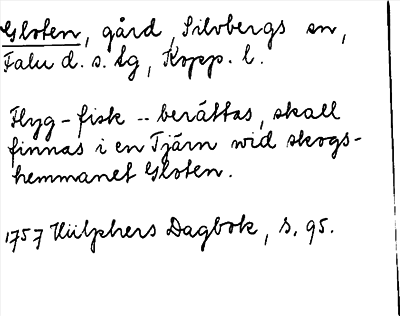 Gloten, gård, Silvbergs sn,
Falu d. s. tg, Kopp. l.
Flyg-fisk -- berättas, skall
finnas i en Tjärn wid skogs-
hemmanet Gloten.
1757 Hülphers Dagbok, s. 95.